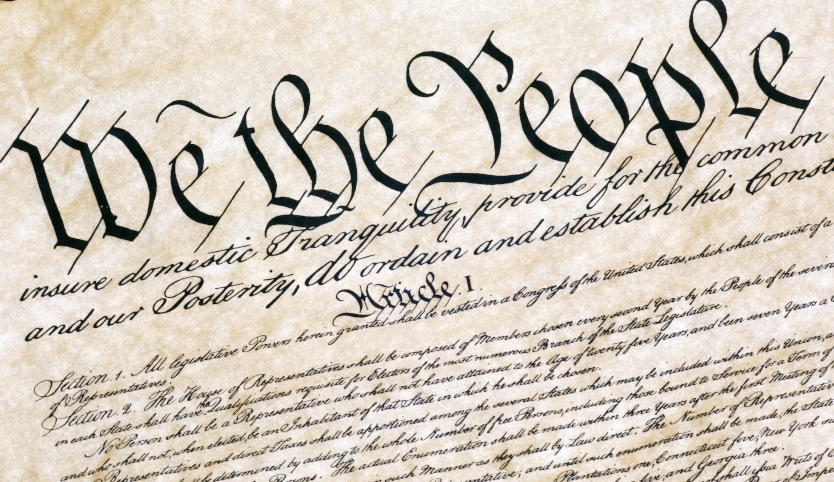 We the People
insure domestic Tranquility, provide for the common
and our Posterity, do ordain and establish this Consti
Article. I.
Section. 1. All legislative Powers herein granted shall be vested in a Congress of the United States, which shall consist of a
of Representatives.
Section. 2. The House of Representatives shall be composed of Members chosen every second Year by the People of the several
in each State shall have the Qualifications requisite for Electors of the most numerous Branch of the State Legislature.
No Person shall be a Representative who shall not have attained to the Age of twenty five Years, and been seven Years a
and who shall not, when elected, be an Inhabitant of that State in which he shall be chosen.
Representatives and direct Taxes shall be apportioned among the several States which may be included within this Union, a
shall be determined by adding to the whole Number of free Persons, including those bound to Service for a Term of
Persons. The actual Enumeration shall be made within three Years after the first Meeting of
such Manner as they shall by Law direct. The Number of Representatives
Representative; and until such enumeration shall be made, the State
Plantations one, Connecticut five, New York
five, and Georgia three.